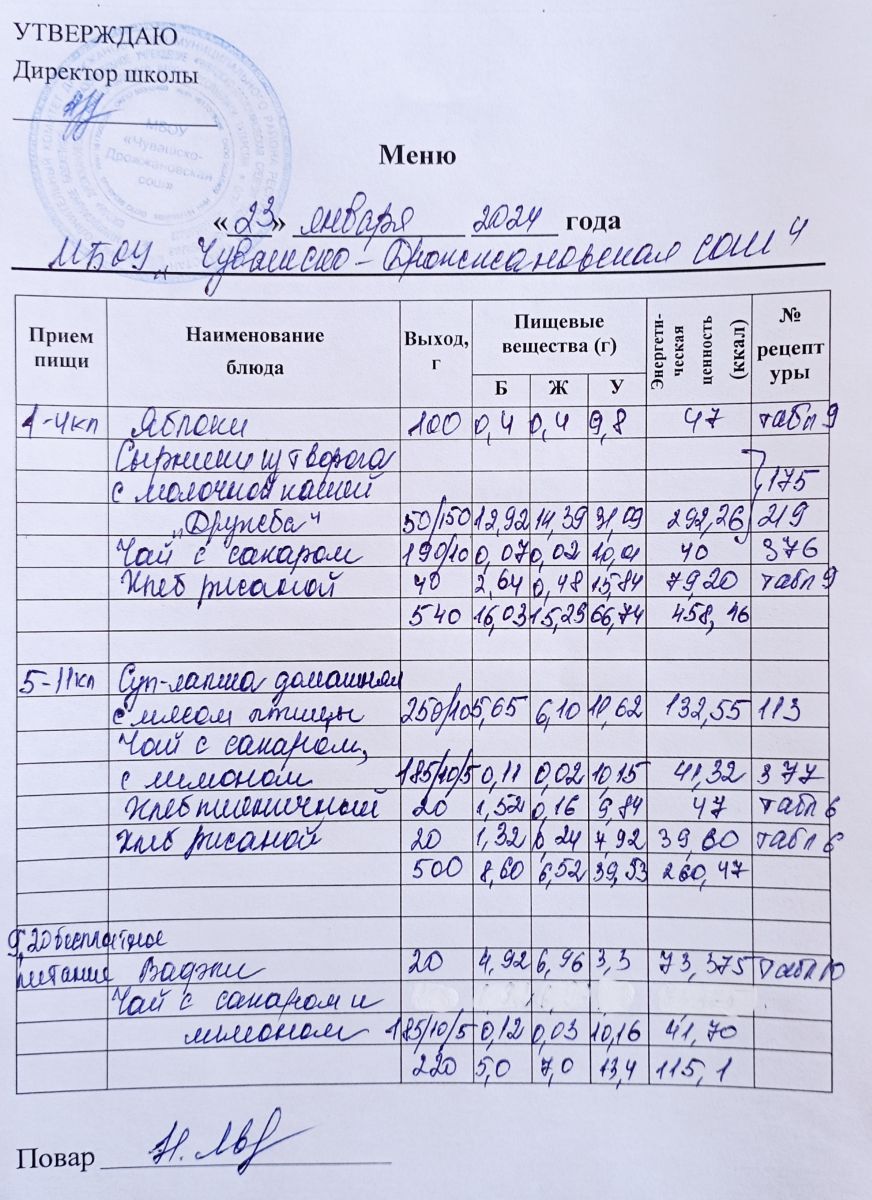 УТВЕРЖДАЮ
Директор школы
МБОУ
«Чувашско-
Дрожжановская
сош»
Меню
«23» января 2024 года
МБОУ „Чувашско-Дрожжановская сош“
Прием пищи Наименование блюда Выход, г Пищевые вещества (г) Б Ж У Энергети-ческая ценность (ккал) № рецептуры
1-4кл Яблоки 100 0,4 0,4 9,8 47 табл 9
Сырники из творога
с молочной кашей 175
„Дружба“ 50/150 12,92 14,39 31,09 292,26 219
Чай с сахаром 190/10 0,07 0,02 10,01 40 376
Хлеб ржаной 40 2,64 0,48 15,84 79,20 табл 9
540 16,03 15,29 66,74 458,46
5-11кл Суп-лапша домашняя
с мясом птицы 250/10 5,65 6,10 11,62 132,55 113
Чай с сахаром,
с лимоном 185/10/5 0,11 0,02 10,15 41,32 377
Хлеб пшеничный 20 1,52 0,16 9,84 47 табл 6
Хлеб ржаной 20 1,32 0,24 7,92 39,60 табл 6
500 8,60 6,52 39,53 260,47
9.20 бесплатное
питание Вафли 20 4,92 6,96 3,3 73,375 табл 10
Чай с сахаром и
лимоном 185/10/5 0,12 0,03 10,16 41,70
220 5,0 7,0 13,4 115,1
Повар